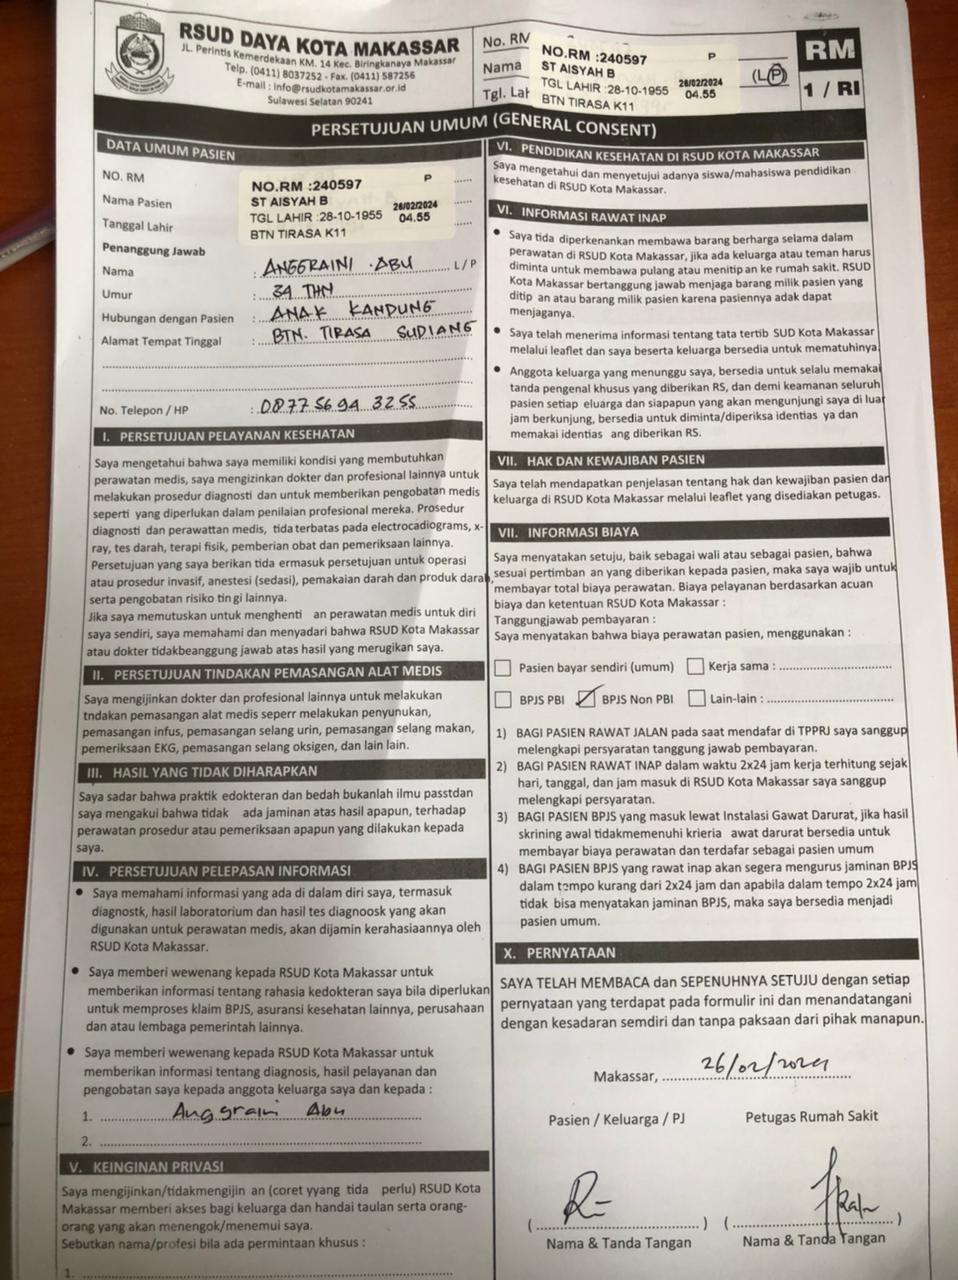 RSUD DAYA KOTA MAKASSAR
JL. Perintis Kemerdekaan KM. 14 Kec. Biringkanaya Makassar
Telp. (0411) 8037252 - Fax. (0411) 587256
E-mail : info@rsudkotamakassar.or.id
Sulawesi Selatan 90241
No. RM
Nama
Tgl. Lahir
NO.RM :240597 P
ST AISYAH B
TGL LAHIR :28-10-1955 26/02/2024
BTN TIRASA K11 04.55
(L/P)
RM
1 / RI
PERSETUJUAN UMUM (GENERAL CONSENT)
DATA UMUM PASIEN
NO. RM
Nama Pasien
Tanggal Lahir
NO.RM :240597 P
ST AISYAH B 26/02/2024
TGL LAHIR :28-10-1955 04.55
BTN TIRASA K11
Penanggung Jawab
Nama : ANGGRAINI ABU L/P
Umur : 34 THN
Hubungan dengan Pasien : ANAK KANDUNG
Alamat Tempat Tinggal : BTN. TIRASA SUDIANG
No. Telepon / HP : 0877 5694 3255
I. PERSETUJUAN PELAYANAN KESEHATAN
Saya mengetahui bahwa saya memiliki kondisi yang membutuhkan
perawatan medis, saya mengizinkan dokter dan profesional lainnya untuk
melakukan prosedur diagnosti dan untuk memberikan pengobatan medis
seperti yang diperlukan dalam penilaian profesional mereka. Prosedur
diagnosti dan perawattan medis, tida terbatas pada electrocadiograms, x-
ray, tes darah, terapi fisik, pemberian obat dan pemeriksaan lainnya.
Persetujuan yang saya berikan tida ermasuk persetujuan untuk operasi
atau prosedur invasif, anestesi (sedasi), pemakaian darah dan produk darah,
serta pengobatan risiko tin gi lainnya.
Jika saya memutuskan untuk menghenti an perawatan medis untuk diri
saya sendiri, saya memahami dan menyadari bahwa RSUD Kota Makassar
atau dokter tidakbeanggung jawab atas hasil yang merugikan saya.
II. PERSETUJUAN TINDAKAN PEMASANGAN ALAT MEDIS
Saya mengijinkan dokter dan profesional lainnya untuk melakukan
tndakan pemasangan alat medis seperr melakukan penyunukan,
pemasangan infus, pemasangan selang urin, pemasangan selang makan,
pemeriksaan EKG, pemasangan selang oksigen, dan lain lain.
III. HASIL YANG TIDAK DIHARAPKAN
Saya sadar bahwa praktik edokteran dan bedah bukanlah ilmu passtdan
saya mengakui bahwa tidak ada jaminan atas hasil apapun, terhadap
perawatan prosedur atau pemeriksaan apapun yang dilakukan kepada
saya.
IV. PERSETUJUAN PELEPASAN INFORMASI
• Saya memahami informasi yang ada di dalam diri saya, termasuk
diagnostk, hasil laboratorium dan hasil tes diagnoosk yang akan
digunakan untuk perawatan medis, akan dijamin kerahasiaannya oleh
RSUD Kota Makassar.
• Saya memberi wewenang kepada RSUD Kota Makassar untuk
memberikan informasi tentang rahasia kedokteran saya bila diperlukan
untuk memproses klaim BPJS, asuransi kesehatan lainnya, perusahaan
dan atau lembaga pemerintah lainnya.
• Saya memberi wewenang kepada RSUD Kota Makassar untuk
memberikan informasi tentang diagnosis, hasil pelayanan dan
pengobatan saya kepada anggota keluarga saya dan kepada :
1. Anggraini Abu
2.
V. KEINGINAN PRIVASI
Saya mengijinkan/tidakmengijin an (coret yyang tida perlu) RSUD Kota
Makassar memberi akses bagi keluarga dan handai taulan serta orang-
orang yang akan menengok/menemui saya.
Sebutkan nama/profesi bila ada permintaan khusus :
1.
VI. PENDIDIKAN KESEHATAN DI RSUD KOTA MAKASSAR
Saya mengetahui dan menyetujui adanya siswa/mahasiswa pendidikan
kesehatan di RSUD Kota Makassar.
VI. INFORMASI RAWAT INAP
• Saya tida diperkenankan membawa barang berharga selama dalam
perawatan di RSUD Kota Makassar, jika ada keluarga atau teman harus
diminta untuk membawa pulang atau menitip an ke rumah sakit. RSUD
Kota Makassar bertanggung jawab menjaga barang milik pasien yang
ditip an atau barang milik pasien karena pasiennya adak dapat
menjaganya.
• Saya telah menerima informasi tentang tata tertib SUD Kota Makassar
melalui leaflet dan saya beserta keluarga bersedia untuk mematuhinya
• Anggota keluarga yang menunggu saya, bersedia untuk selalu memakai
tanda pengenal khusus yang diberikan RS, dan demi keamanan seluruh
pasien setiap eluarga dan siapapun yang akan mengunjungi saya di luar
jam berkunjung, bersedia untuk diminta/diperiksa identias ya dan
memakai identias ang diberikan RS.
VII. HAK DAN KEWAJIBAN PASIEN
Saya telah mendapatkan penjelasan tentang hak dan kewajiban pasien dan
keluarga di RSUD Kota Makassar melalui leaflet yang disediakan petugas.
VII. INFORMASI BIAYA
Saya menyatakan setuju, baik sebagai wali atau sebagai pasien, bahwa
sesuai pertimban an yang diberikan kepada pasien, maka saya wajib untuk
membayar total biaya perawatan. Biaya pelayanan berdasarkan acuan
biaya dan ketentuan RSUD Kota Makassar :
Tanggungjawab pembayaran :
Saya menyatakan bahwa biaya perawatan pasien, menggunakan :
Pasien bayar sendiri (umum) Kerja sama :
BPJS PBI BPJS Non PBI Lain-lain :
1) BAGI PASIEN RAWAT JALAN pada saat mendafar di TPPRJ saya sanggup
melengkapi persyaratan tanggung jawab pembayaran.
2) BAGI PASIEN RAWAT INAP dalam waktu 2x24 jam kerja terhitung sejak
hari, tanggal, dan jam masuk di RSUD Kota Makassar saya sanggup
melengkapi persyaratan.
3) BAGI PASIEN BPJS yang masuk lewat Instalasi Gawat Darurat, jika hasil
skrining awal tidakmemenuhi krieria awat darurat bersedia untuk
membayar biaya perawatan dan terdafar sebagai pasien umum
4) BAGI PASIEN BPJS yang rawat inap akan segera mengurus jaminan BPJS
dalam tempo kurang dari 2x24 jam dan apabila dalam tempo 2x24 jam
tidak bisa menyatakan jaminan BPJS, maka saya bersedia menjadi
pasien umum.
X. PERNYATAAN
SAYA TELAH MEMBACA dan SEPENUHNYA SETUJU dengan setiap
pernyataan yang terdapat pada formulir ini dan menandatangani
dengan kesadaran semdiri dan tanpa paksaan dari pihak manapun.
Makassar, 26/02/2024
Pasien / Keluarga / PJ Petugas Rumah Sakit
( ) ( )
Nama & Tanda Tangan Nama & Tanda Tangan